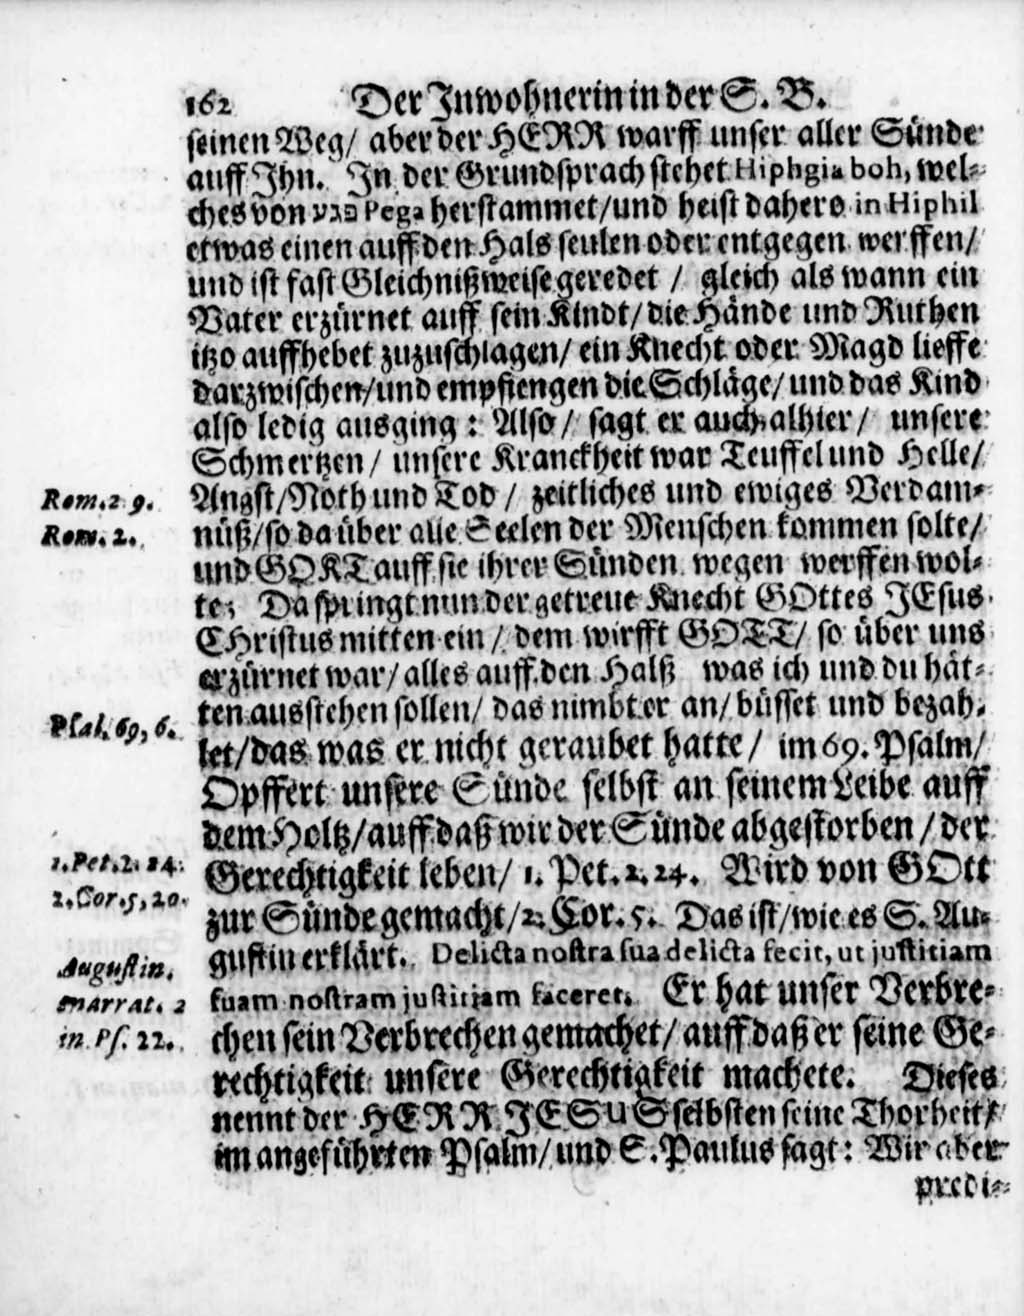 162 Der Inwohnerin in der S. B.
seinen Weg/ aber der HERR warff unser aller Sünde
auff Ihn. In der Grundsprach stehet Hiphgia boh, wel-
ches von פגע Pega herstammet/und heist dahero in Hiphil
etwas einen auff den Hals seulen oder entgegen werffen/
und ist fast Gleichnißweise geredet / gleich als wann ein
Vater erzürnet auff sein Kindt/die Hände und Ruthen
itzo auffhebet zuzuschlagen/ ein Knecht oder Magd lieffe
darzwischen/und empfiengen die Schläge/ und das Kind
also ledig ausging : Also / sagt er auch alhier / unsere
Schmertzen / unsere Kranckheit war Teuffel und Helle/
Rom. 2 9. Angst/Noth und Tod / zeitliches und ewiges Verdam-
Rom. 2. nüß/so da über alle Seelen der Menschen kommen solte/
und GOTT auff sie ihrer Sünden wegen werffen wol-
te; Da springt nun der getreue Knecht GOttes JEsus
CHristus mitten ein / dem wirfft GOTT/ so über uns
erzürnet war/ alles auff den Halß was ich und du hät-
Psal. 69, 6. ten ausstehen sollen/ das nimbt er an/ büsset und bezah-
let/das was er nicht geraubet hatte / im 69. Psalm/
Opffert unsere Sünde selbst an seinem Leibe auff
dem Holtz/auff daß wir der Sünde abgestorben / der
1. Pet. 2. 24. Gerechtigkeit leben/ 1. Pet. 2. 24. Wird von GOtt
2. Cor. 5, 20. zur Sünde gemacht/2. Cor. 5. Das ist/wie es S. Au-
Augustin. gustin erklärt. Delicta nostra sua delicta fecit, ut justitiam
enarrat. 2 suam nostram justitiam faceret. Er hat unser Verbre-
in Ps. 22. chen sein Verbrechen gemachet/ auff daß er seine Ge-
rechtigkeit unsere Gerechtigkeit machete. Dieses
nennt der HERR JESUS selbsten seine Thorheit/
im angeführten Psalm/ und S. Paulus sagt: Wir aber
predi-